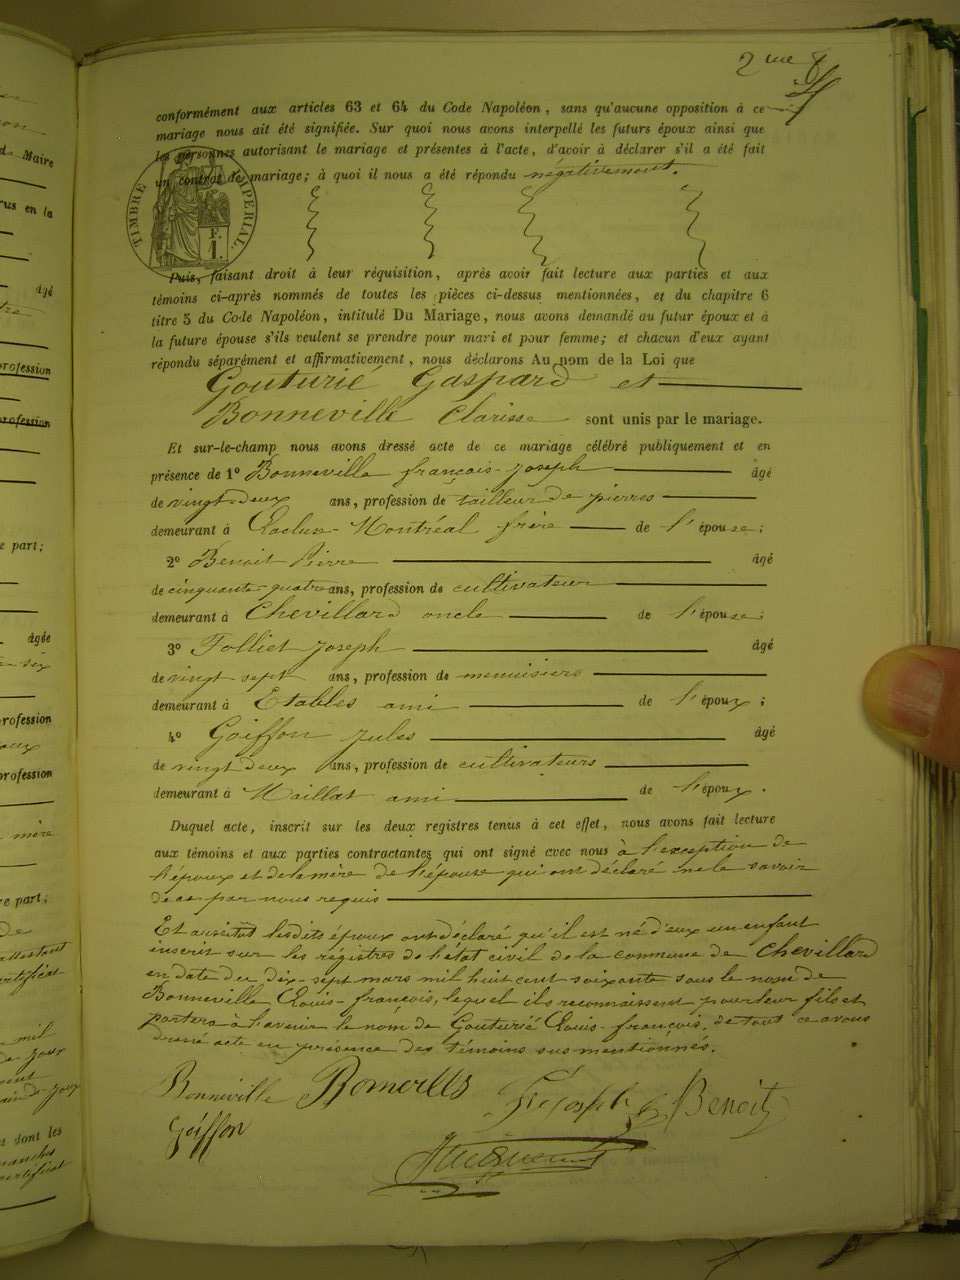 2me
conformément aux articles 63 et 64 du Code Napoléon, sans qu'aucune opposition à ce
mariage nous ait été signifiée. Sur quoi nous avons interpellé les futurs époux ainsi que
les personnes autorisant le mariage et présentes à l'acte, d'avoir à déclarer s'il a été fait
un contrat de mariage; à quoi il nous a été répondu négativement.
TIMBRE IMPÉRIAL
F.
1.
Puis, faisant droit à leur réquisition, après avoir fait lecture aux parties et aux
témoins ci-après nommés de toutes les pièces ci-dessus mentionnées, et du chapitre 6
titre 5 du Code Napoléon, intitulé Du Mariage, nous avons demandé au futur époux et à
la future épouse s'ils veulent se prendre pour mari et pour femme; et chacun d'eux ayant
répondu séparément et affirmativement, nous déclarons Au nom de la Loi que
Gouturié Gaspard et
Bonneville Clarisse sont unis par le mariage.
Et sur-le-champ nous avons dressé acte de ce mariage célébré publiquement et en
présence de 1º Bonneville françois-Joseph âgé
de vingt-deux ans, profession de tailleur de pierres
demeurant à Montréal frère de l'épouse;
2º Benoit Pierre âgé
de cinquante quatre ans, profession de cultivateur
demeurant à Chevillard oncle de l'épouse;
3º Folliet Joseph âgé
de vingt sept ans, profession de menuisiers
demeurant à Etables ami de l'époux;
4º Goiffon Jules âgé
de vingt deux ans, profession de cultivateurs
demeurant à Maillat ami de l'époux.
Duquel acte, inscrit sur les deux registres tenus à cet effet, nous avons fait lecture
aux témoins et aux parties contractantes qui ont signé avec nous à l'exception de
l'époux et de la mère de l'épouse qui ont déclaré ne le savoir
de ce par nous requis
Et aussitôt lesdits époux ont déclaré qu'il est né d'eux un enfant
inscrit sur les registres de l'état civil de la commune de Chevillard
en date du dix-sept mars mil huit cent soixante sous le nom de
Bonneville Louis-françois, lequel ils reconnaissent pour leur fils et
portera à l'avenir le nom de Gouturié Louis-françois, de tout ce avons
dressé acte en présence des témoins sus mentionnés.
Bonneville Benoit
Goiffon